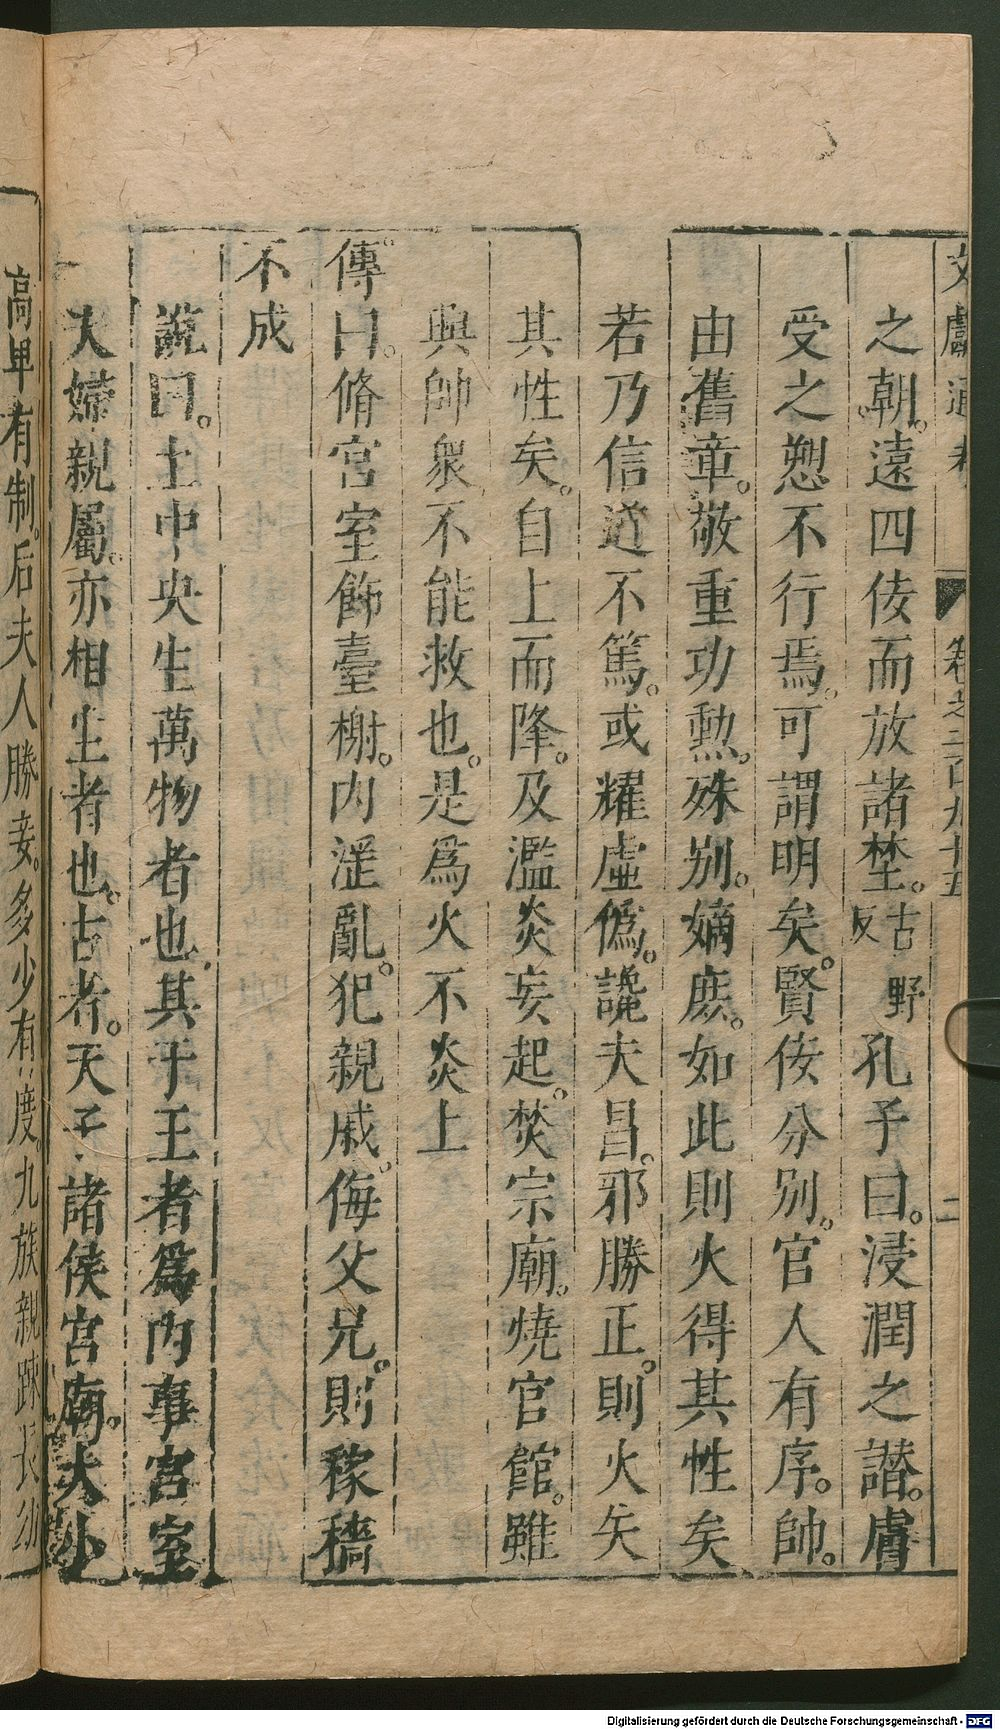 文獻通考 卷之二百九十五 二
之朝。遠四佞而放諸埜。古野反孔子曰。浸潤之譖。膚
受之愬不行焉。可謂明矣。賢佞分別。官人有序。帥
由舊章。敬重功勲。殊别。嫡庶。如此則火得其性矣
若乃信道不篤。或耀虛僞。讒夫昌。邪勝正。則火矢
其性矣。自上而降。及濫炎妄起。焚宗廟。燒官館。雖
興帥衆不能救也。是爲火不炎上
傳曰。脩宮室飾臺榭。内淫亂。犯親戚。侮父兄。則稼穡
不成
說曰。土中央生萬物者也其于王者爲内事宮室
夫婦親屬。亦相生者也。古者。天子諸侯宮廟。大小
高卑有制。后夫人媵妾。多少有度。九族親疎長幼
Digitalisierung gefördert durch die Deutsche Forschungsgemeinschaft - DFG